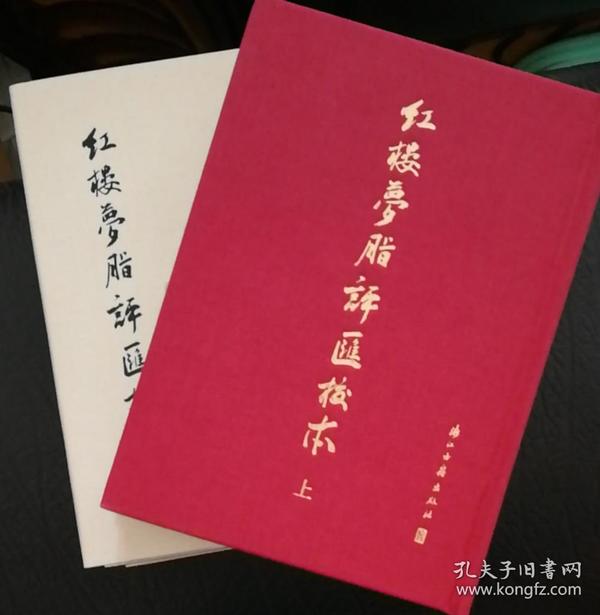 红楼夢脂評匯
红楼夢脂評匯校本
上
浙江古籍出版社
孔夫子旧书网
www.kongfz.com